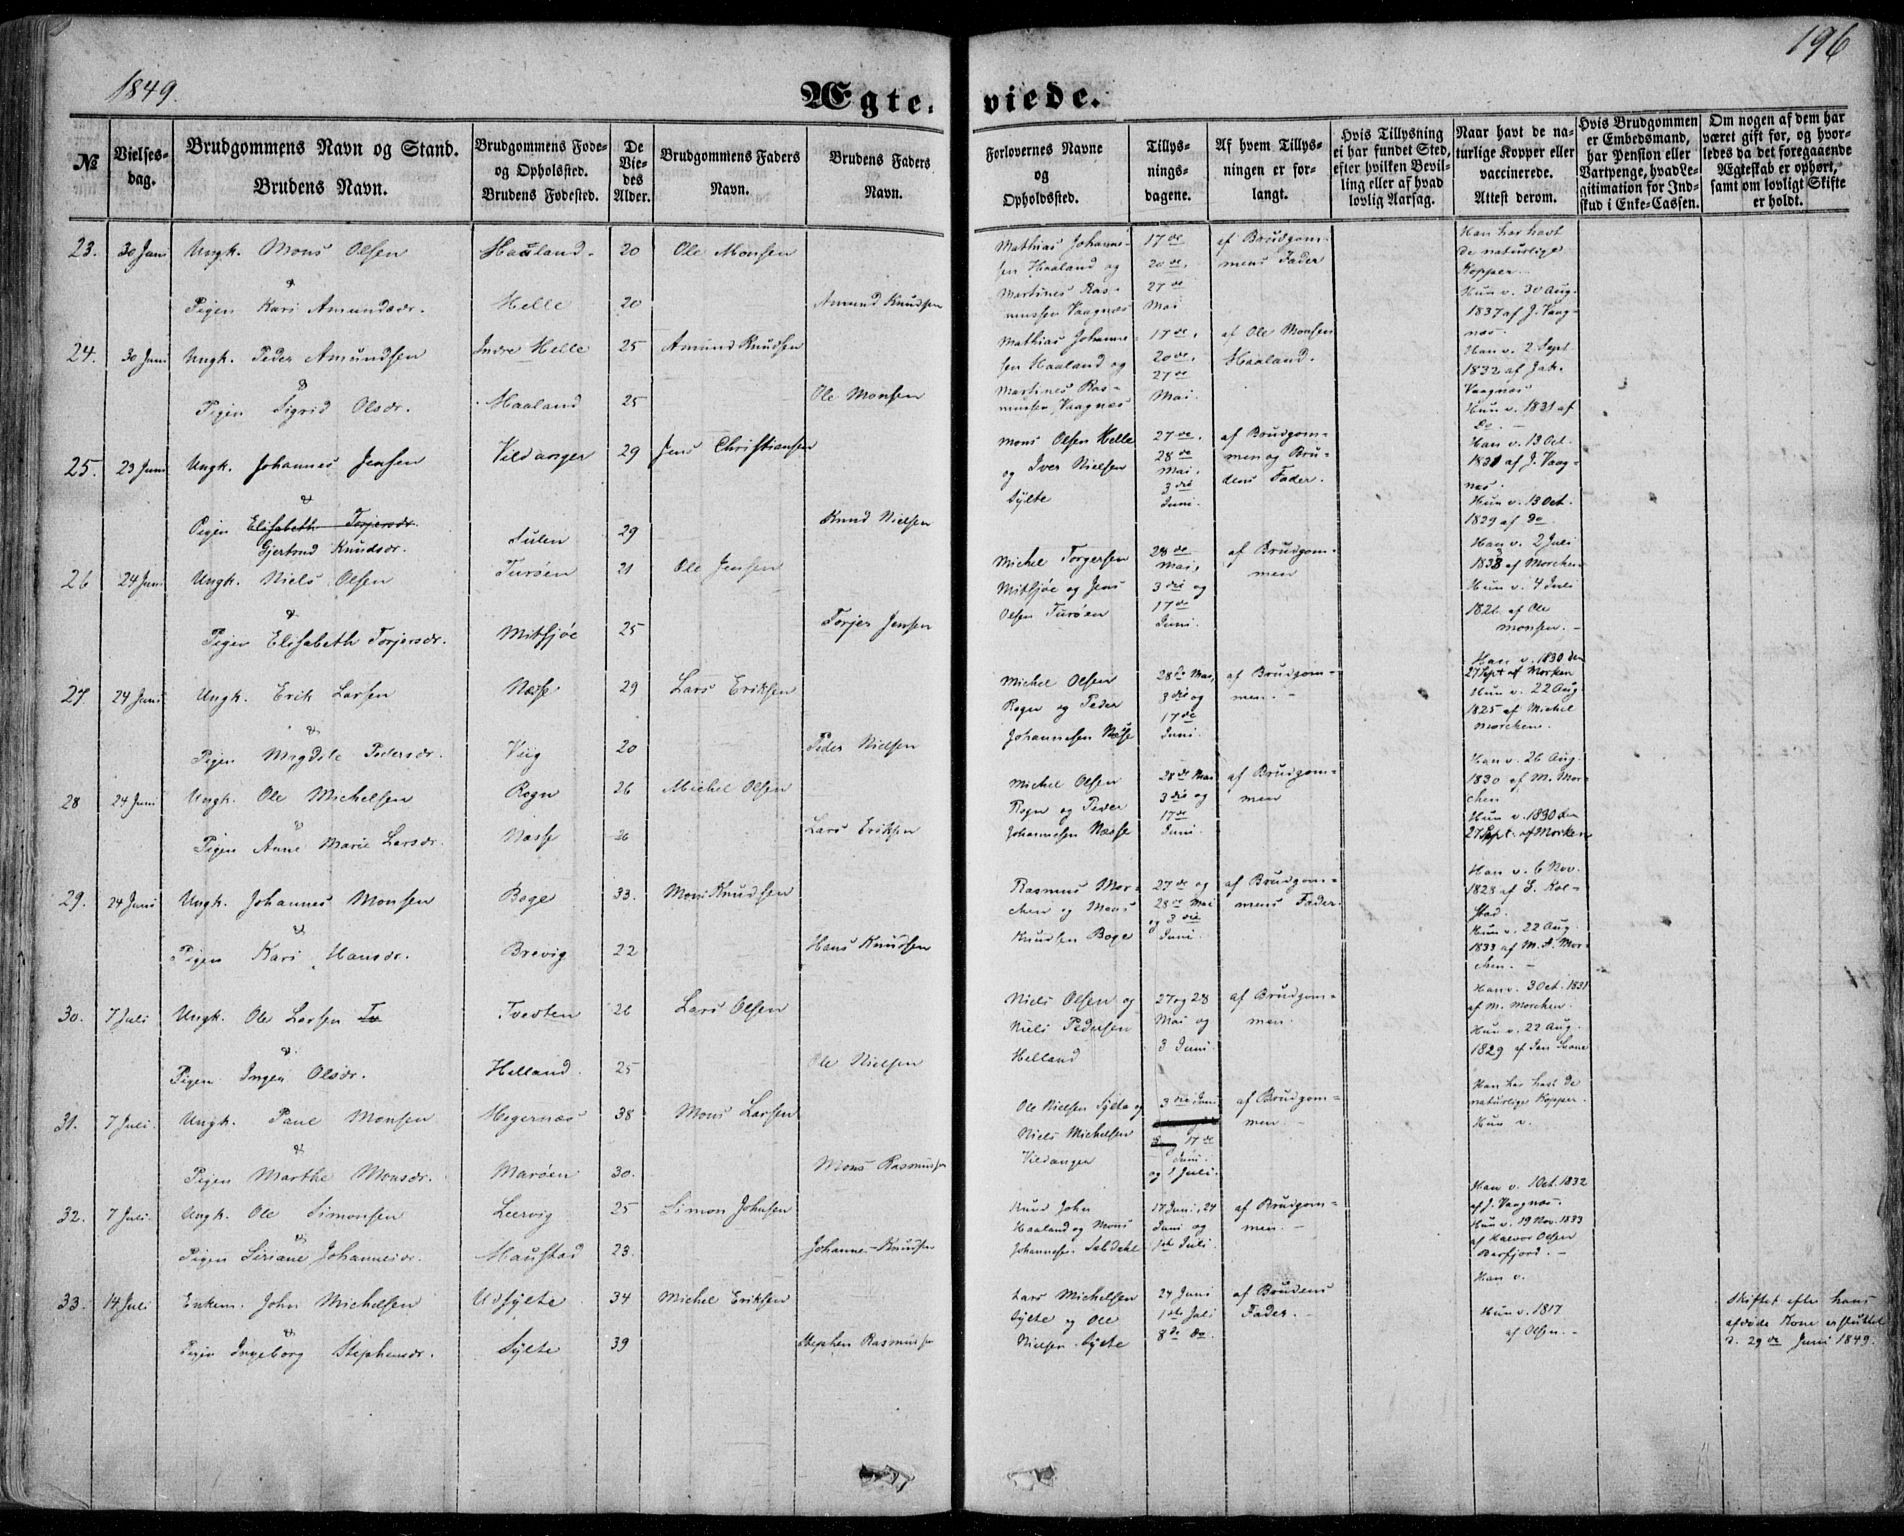 1849.
196
Ægte-
viede.
№
Vielses-
dag.
Brudgommens Navn og Stand.
Brudens Navn.
Brudgommens Føde-
og Opholsted.
Brudens Fødested.
De
Vie-
des
Alder.
Brudgommens Faders
Navn.
Brudens Faders
Navn.
Forlovernes Navne
og
Opholdssted.
Tillys-
nings-
dagene.
Af hvem Tillys-
ningen er for-
langt.
Hvis Tillysning
ei har fundet Sted,
efter hvilken Bevil-
ling eller af hvad
lovlig Aarsag.
Naar havt de na-
turlige Kopper eller
vaccinerede.
Attest derom.
Hvis Brudgommen
er Embedsmand,
har Pension eller
Vartpenge, hvad Le-
gitimation for Ind-
skud i Enke-Cassen.
Om nogen af dem har
været gift før, og hvor-
ledes da det foregaaende
Ægteskab er ophørt,
samt om lovligt Skifte
er holdt.
23. 30 Juni Ungk. Mons Olsen Haaland. 20 Ole Monsen
&
Pigen Kari Amundsdr. Helle 20 Amund Knudsen
Mathias Johanne-
sen Haaland og
Martines Ras-
mussen Vaagnæs
17de
20de,
27de
Mai
af Brudgom-
mens Fader
Han har havt
de naturlige
Kopper.
Hun v. 30 Aug.
1837 af J. Vaag-
næs.
24. 30 Juni Ungk. Peder Amundsen Indre Helle 25 Amund Knudsen
&
Pigen Sigrid Olsdr. Haaland 25 Ole Monsen
Mathias Johanne-
sen Haaland og
Martines Ras-
mussen, Vaagnæs
17de
20de,
27de
Mai.
af Ole Monsen
Haaland.
Han v. 2 Sept
1832 af Jak.
Vaagnæs
Hun v. 1831 af
Do. -
25. 23 Juni Ungk. Johannes Jensen Vildanger 29 Jens Christiansen
&
Pigen Elisabeth Torjersdr.
Gjertrud Knudsdr. Sulen 29 Knud Nielsen
Mons Olsen Helle
og Iver Nielsen
Sylte
27de,
28de
Mai,
3die
Juni.
af Brudgom-
men og Bru-
dens Fader.
Han v. 13 Oct.
1831 af J. Vaag-
næs.
Hun v. 13 Oct.
1829 af Do
26 24 Juni Ungk. Niels Olsen Turøen 21 Ole Jensen
&
Pigen Elisabeth Torjersdr. Mitsjøe 25 Torjer Jensen
Michel Torgersen
Mitsjøe og Jens
Olsen Turøen
28de
Mai,
3die og
17de
Juni.
af Brudgom-
men
Han v. 2 Juli
1833 af Morchen
Hun v. 4 Juli
1826 af Ole
Monsen. -
27. 24 Juni Ungk. Erik Larsen Næsse 29 Lars Eriksen
&
Pigen Magdele Pedersdr. Viig 20 Peder Nielsen
Michel Olsen
Rogn og Peder
Johannesen Næsse
28de Mai,
3die og
17de
Juni.
af Brudgom-
men. -
Han v. 1830 den
27 Sept af Morken
Hun v. 22 Aug.
1825 af Michel
Morchen.
28 24 Juni Ungk. Ole Michelsen Rogn 26 Michel Olsen
&
Pigen Anne Marie Larsdr. Næsse 26 Lars Eriksen
Michel Olsen
Rogn og Peder
Johannesen Næsse
28de Mai
3die og
17de
Juni.
af Brudgom-
men
Han v. 26 Aug.
1830 af M. Mor-
chen
Hun v. 1830 den
27 Sept. af Morken
29. 24 Juni Ungk. Johannes Monsen Boge 33. Mons Knudsen
&
Pigen Kari Hansdr. Brevig 22 Hans Knudsen
Rasmus Mor-
chen og Mons
Knudsen Boge
27de og
28de Mai
og 3die
Juni.
af Brudgom-
mens Fader.
Han v. 6 Nov.
1828 af S. Kol-
stad.
Hun v. 22 Aug.
1833 af M. A. Mor-
chen. -
30. 7 Juli Ungk. Ole Larsen Tv Tvedten 26 Lars Olsen
&
Pigen Ingen Olsdr. Helland. 25 Ole Nielsen
Niels Olsen og
Niels Pedersen
Helland
27 og 28
Mai og
3 Juni.
af Brudgom-
men.
Han v. 3 Oct. 1831
af M. Morchen.
Hun v. 22 Aug.
1829 af Jan Stone
31. 7 Juli. Ungk. Paul Monsen Hegernæs 38 Mons Larsen
&
Pigen Marthe Monsdr. Marøen 30. Mons Rasmussen
Ole Nielsen Sylte og
Niels Michelsen
Vildanger
3die Juni
17de
Juni.
og 1 Juli.
af Brudgom-
men. -
Han har havt de
naturlige Kopper.
Hun v.
32. 7 Juli. Ungk. Ole Simonsen Leervig 25 Simon Johnsen
&
Pigen Seriane Johannesdr. Maustad 23. Johanne- Knudsen
Knud John
Haaland og Mons
Johannesen Saldahl
17 Juni, 24
Juni og
1ste Juli.
af Brudgom-
men. -
Han v. 1 Oct. 1832
af J. Vaagnæs.
Hun v. 19 Nov. 1833
af Halvor Olsen
Barfjord. -
33. 14 Juli Enkem. John Michelsen Udsylte 34 Michel Eriksen
&
Pige Ingeborg Stephensdr. Sylte 39 Stephen Rasmussen
Lars Michelsen
Sylte og Ole
Nielsen Sylte
24 Juni
1ste Juli
8de Do.
af Brudens
Fader. -
Han v.
Hun v. 1817
af Olsen. -
Skiftet efter hans
afdøde Kone er sluttet
d. 29de Juni 1849.